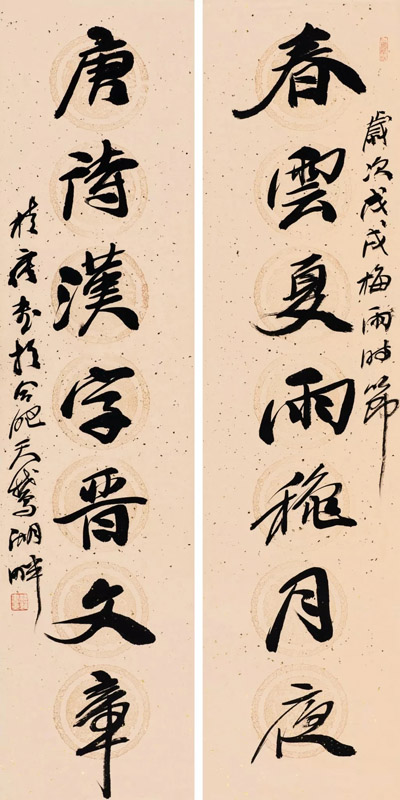 歲次戊戌梅雨時節
春雲夏雨穐月夜
唐詩漢字晋文章
書於合肥天鵞湖畔